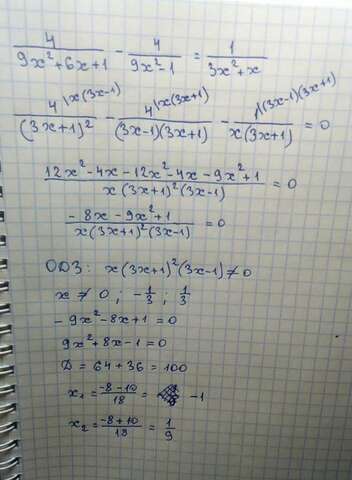 4/(9x²+6x+1) - 4/(9x²-1) = 1/(3x²+x)
4\x(3x-1)/(3x+1)² - 4\x(3x+1)/((3x-1)(3x+1)) - 1\(3x-1)(3x+1)/(x(3x+1)) = 0
(12x²-4x-12x²-4x-9x²+1)/(x(3x+1)²(3x-1)) = 0
(-8x-9x²+1)/(x(3x+1)²(3x-1)) = 0
ОДЗ: x(3x+1)²(3x-1)≠0
x ≠ 0; -1/3; 1/3
-9x²-8x+1=0
9x²+8x-1=0
D = 64+36=100
x₁ = (-8-10)/18 = -1
x₂ = (-8+10)/18 = 1/9